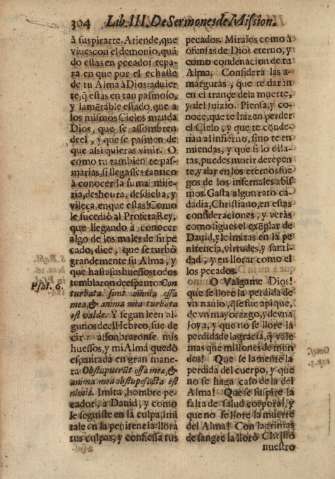 304 Lib. III. De Sermones de Mission.
à suspirarte. Atiende, que
vives con el demonio, quã
do estas en pecado: repa-
ra en que por el echaste
de tu Alma à Dios: advier-
te, q̃ estàs en tan pasmoso,
y lamẽtable estado, que a
los mismos Cielos manda
Dios, que se assombren
de el, y que se pasmen de
que assi quieras vivir. O
como tu tambien te pas-
màras, si llegasses tantico
à conocer la suma mise-
ria, deshonra, desdicha, y
vileza, en que estàs! Como
le sucediò al Profeta Rey,
que llegando à conocer
algo de los males de su pe
cado, dice, que se turbò
grandemente su Alma, y
que hasta sus huessos todos
temblaron de espanto: Con
turbata sunt omnia ossa
mea, & anima mea turbata
est valde. Y segun leen al-
gunos de el Hebreo, fue de
cir: assombraronse mis
huessos, y mi Alma quedò
espantada en gran mane-
ra: Obstupuerũt ossa mea, &
anima mea obstupefacta est
nimis. Imita, hombre pe-
cador, à David, y como
le seguiste en la culpa, imi
tale en la penitencia: llora
tus culpas, y confiessa tus
Psal. 6.
pecados. Miralos como à
ofensas de Dios eterno, y
como condenacion de tu
Alma. Considera las a-
marguras, que te daràn
en el trance de la muerte,
y del juizio. Piensa, y co-
noce, que te hazen perder
el Cielo, y que te conde-
nan al infierno, sino te en-
miendas, y que si lo dila-
tas, puedes morir de repen-
te, y dar en los eternos fue-
gos de los infernales abis-
mos. Gasta algun rato ca-
da dia, Christiano, en estas
consideraciones, y veràs
como sigues el exemplar de
David, y le imitas en la pe
nitencia, virtudes, y santi-
dad, y en llorar como el
los pecados.
O Valgame Dios!
que se llore la perdida de
vn navio, de este apique,
de vn mayorazgo, y de vna
joya, y que no se llore la
perdida de la gracia, q̃ vale
mas que millones de mun
dos! Que se lamente la
perdida del cuerpo, y que
no se haga caso de la del
Alma! Que se suspire la
falta de salud corporal, y
que no se llore la muerte
del Alma! Con lagrimas
de sangre la llorò Christo
nuestro